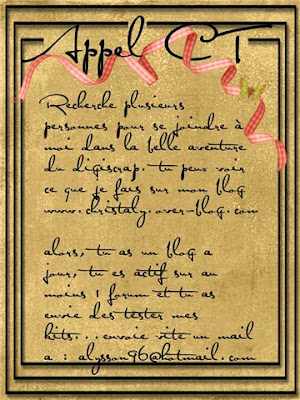 Appel CT
Recherche plusieurs
personnes pour se joindre à
moi dans la belle aventure
du digiscrap. tu peux voir
ce que je fais sur mon blog
www.christaly.over-blog.com
alors, tu as un blog a
jour, tu es actif sur au
moins 1 forum et tu as
envie des tester mes
kits... envoie vite un mail
a : alysson96@hotmail.com